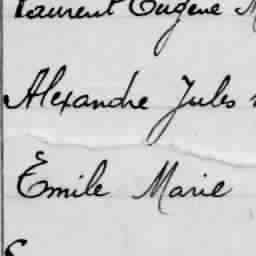 Laurent Eugène
Alexandre Jules
Emile Marie